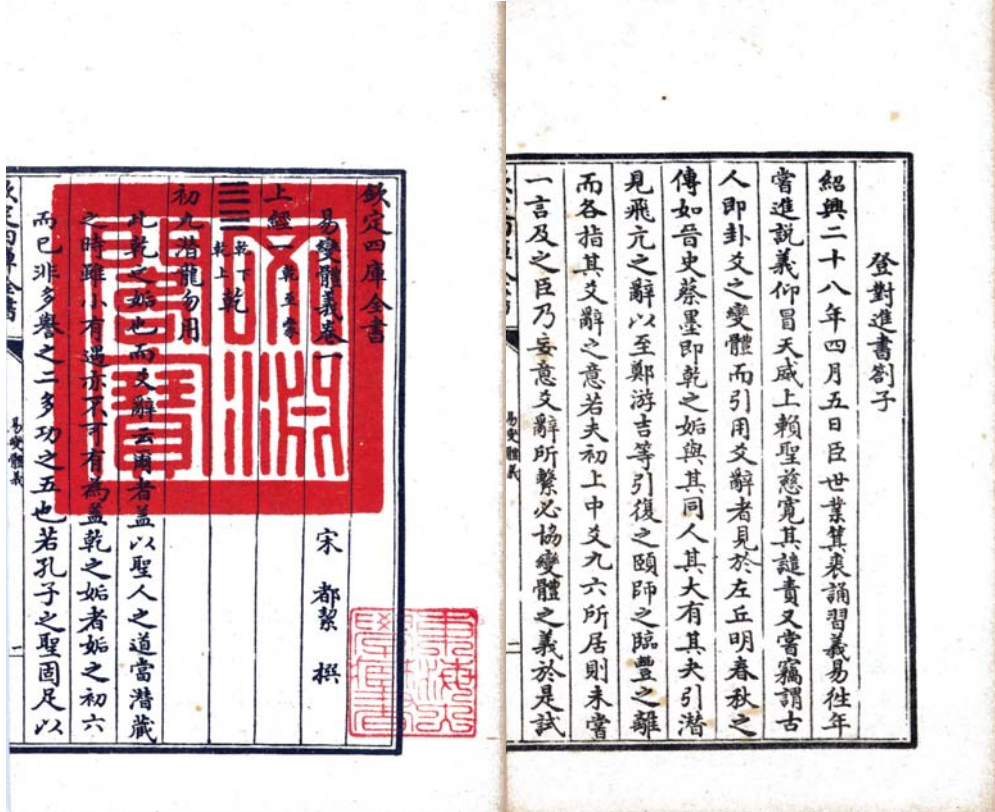 登對進書劄子
紹興二十八年四月五日臣世業箕裘誦習義易徃年
嘗進説義仰冒天威上賴聖慈寛其譴責又嘗竊謂古
人即卦爻之變體而引用爻辭者見於左丘明春秋之
傳如晉史蔡墨即乾之姤與其同人其大有其夬引潛
見飛亢之辭以至鄭游吉等引復之頤師之臨豐之離
而各指其爻辭之意若夫初上中爻九六所居則未嘗
一言及之臣乃妄意爻辭所繫必協變體之義於是試
易變體義
二
欽定四庫全書
易變體義卷一
宋 都絜 撰
上經一 乾至蒙
乾下乾上 乾
初九潛龍勿用
此乾之姤也而爻辭云爾者盖以聖人之道當潛藏
之時雖小有遇亦不可有為盖乾之姤者姤之初六
而已非多譽之二多功之五也若孔子之聖固足以
欽定四庫全書
易變體義
一
文淵閣寶